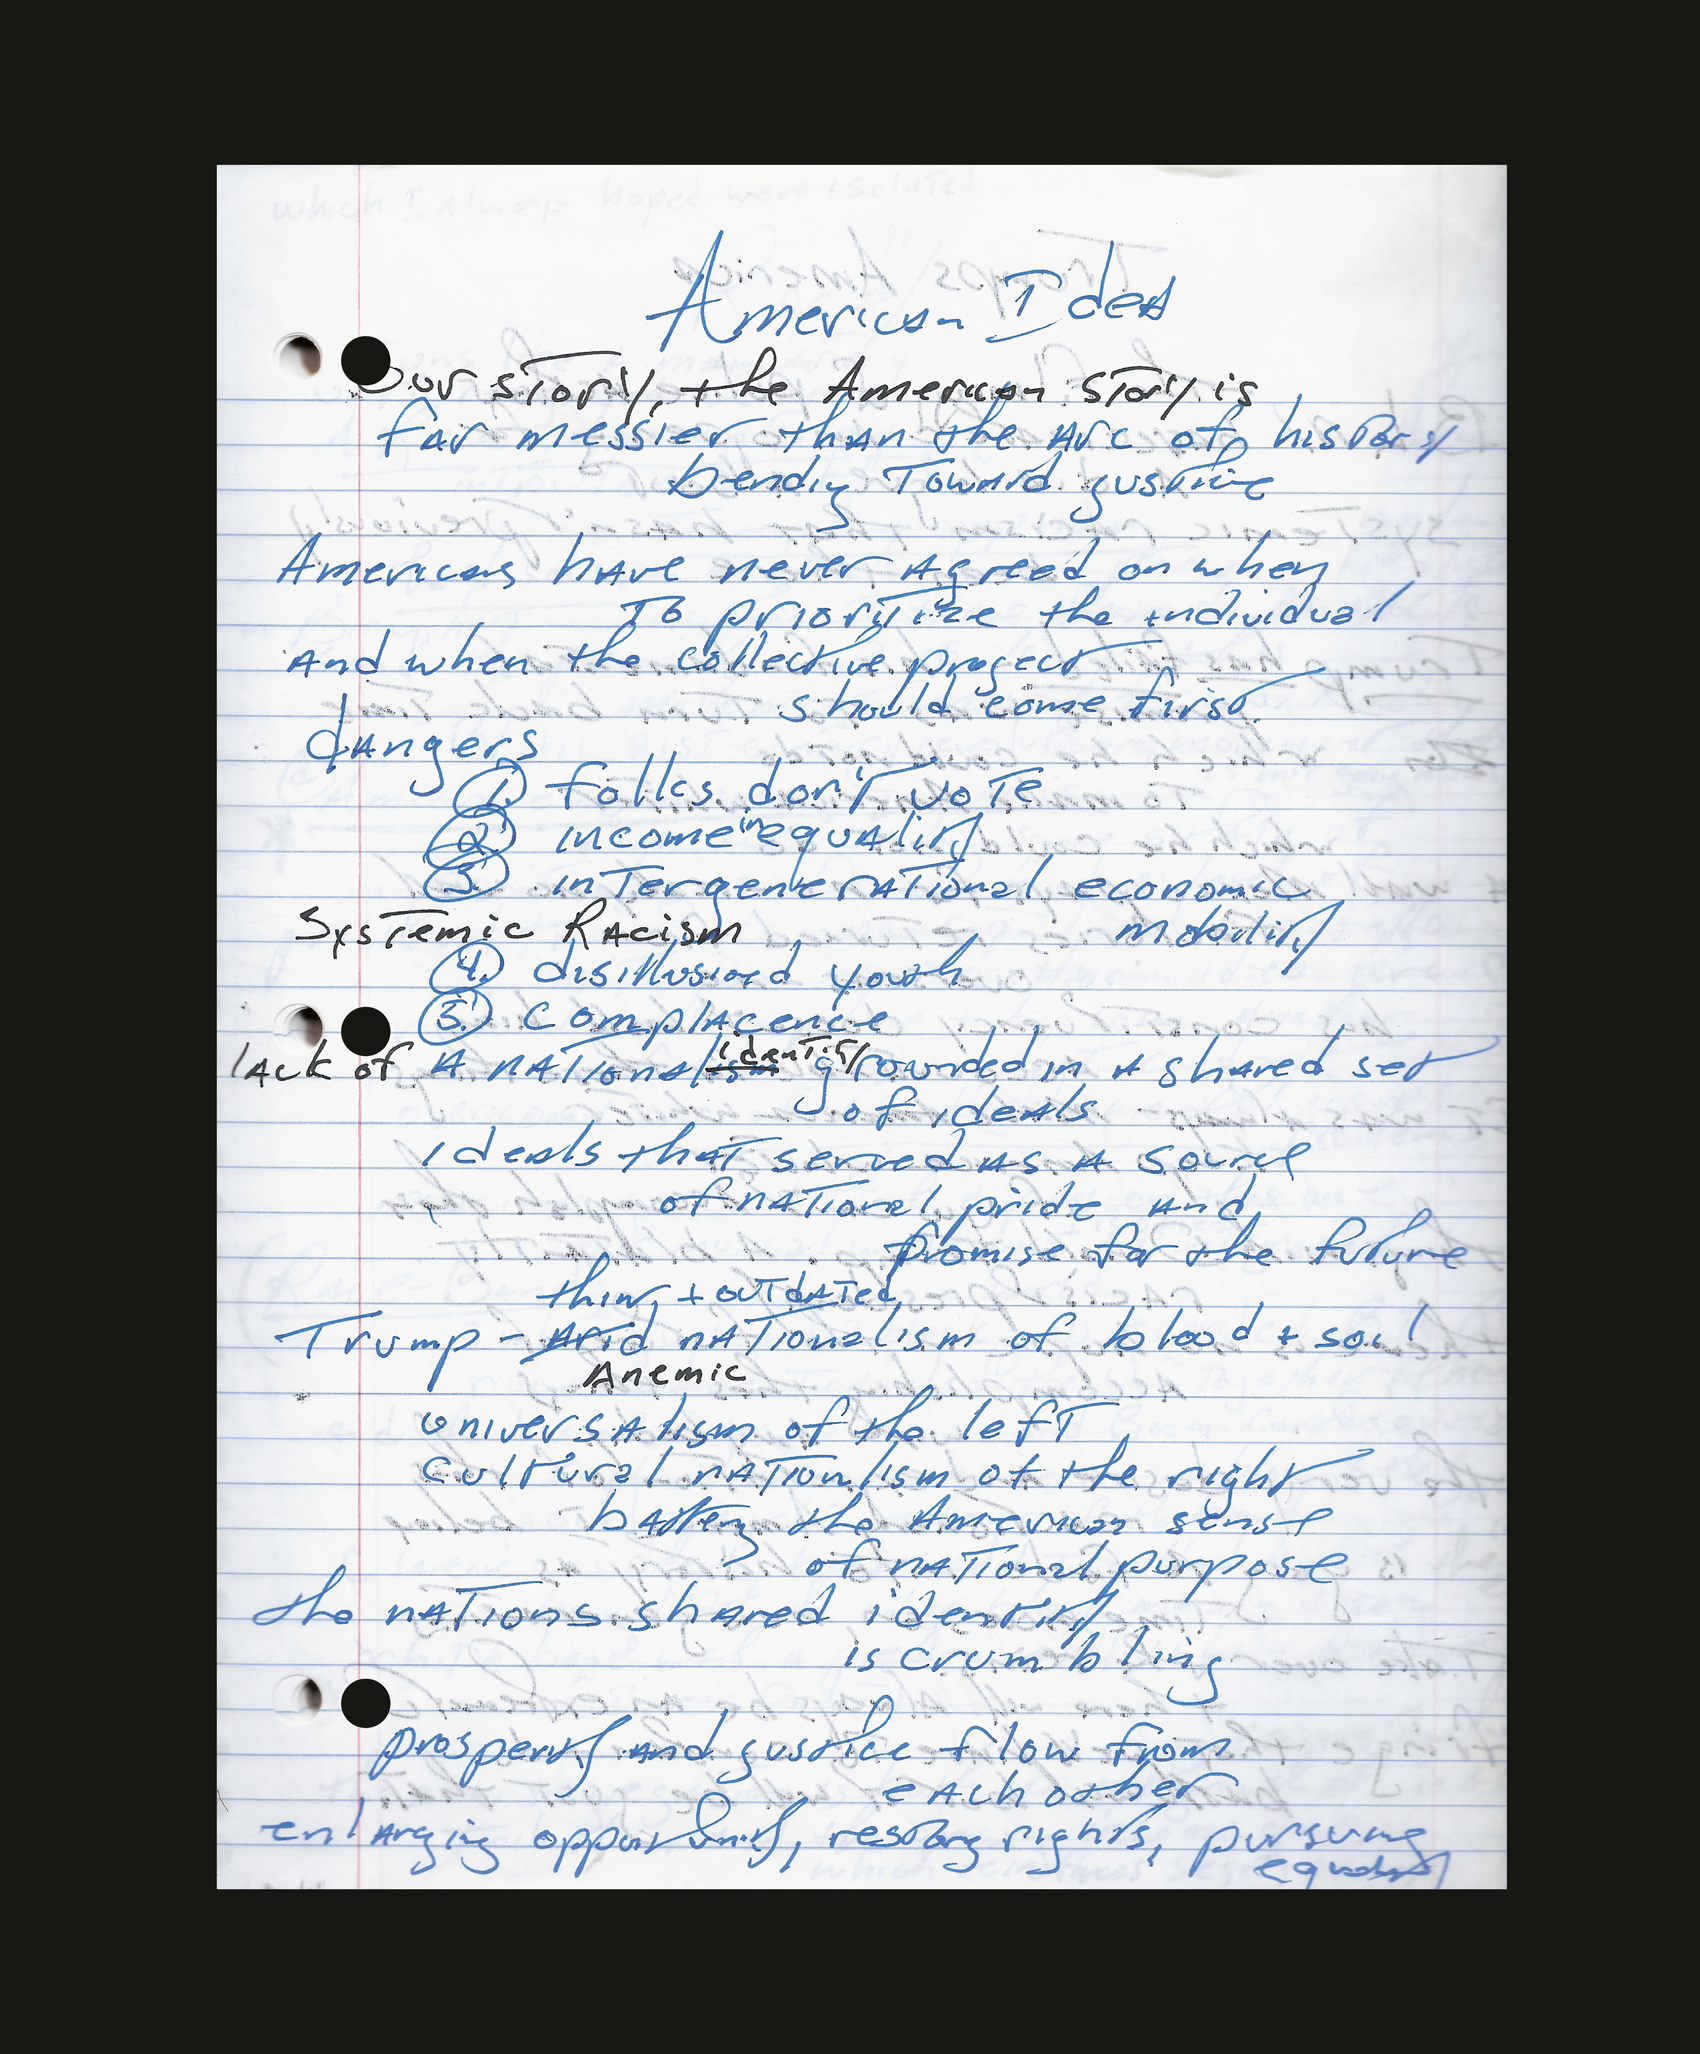 American Idea
Our story, the American story is
far messier than the arc of history
bending toward justice
Americans have never agreed on when
to prioritize the individual
and when the collective project
should come first
dangers
1. folks don't vote
2. income inequality
3. intergenerational economic
mobility
Systemic Racism
4. disillusioned youth
5. complacence
lack of a national identity grounded in a shared set
of ideals
ideals that served as a source
of national pride and
promise for the future
thin + outdated
Trump - arid nationalism of blood + soil
Anemic
universalism of the left
cultural nationalism of the right
battering the American sense
of national purpose
the nations shared identity
is crumbling
prosperity and justice flow from
each other
enlarging opportunity, restoring rights, pursuing
equality